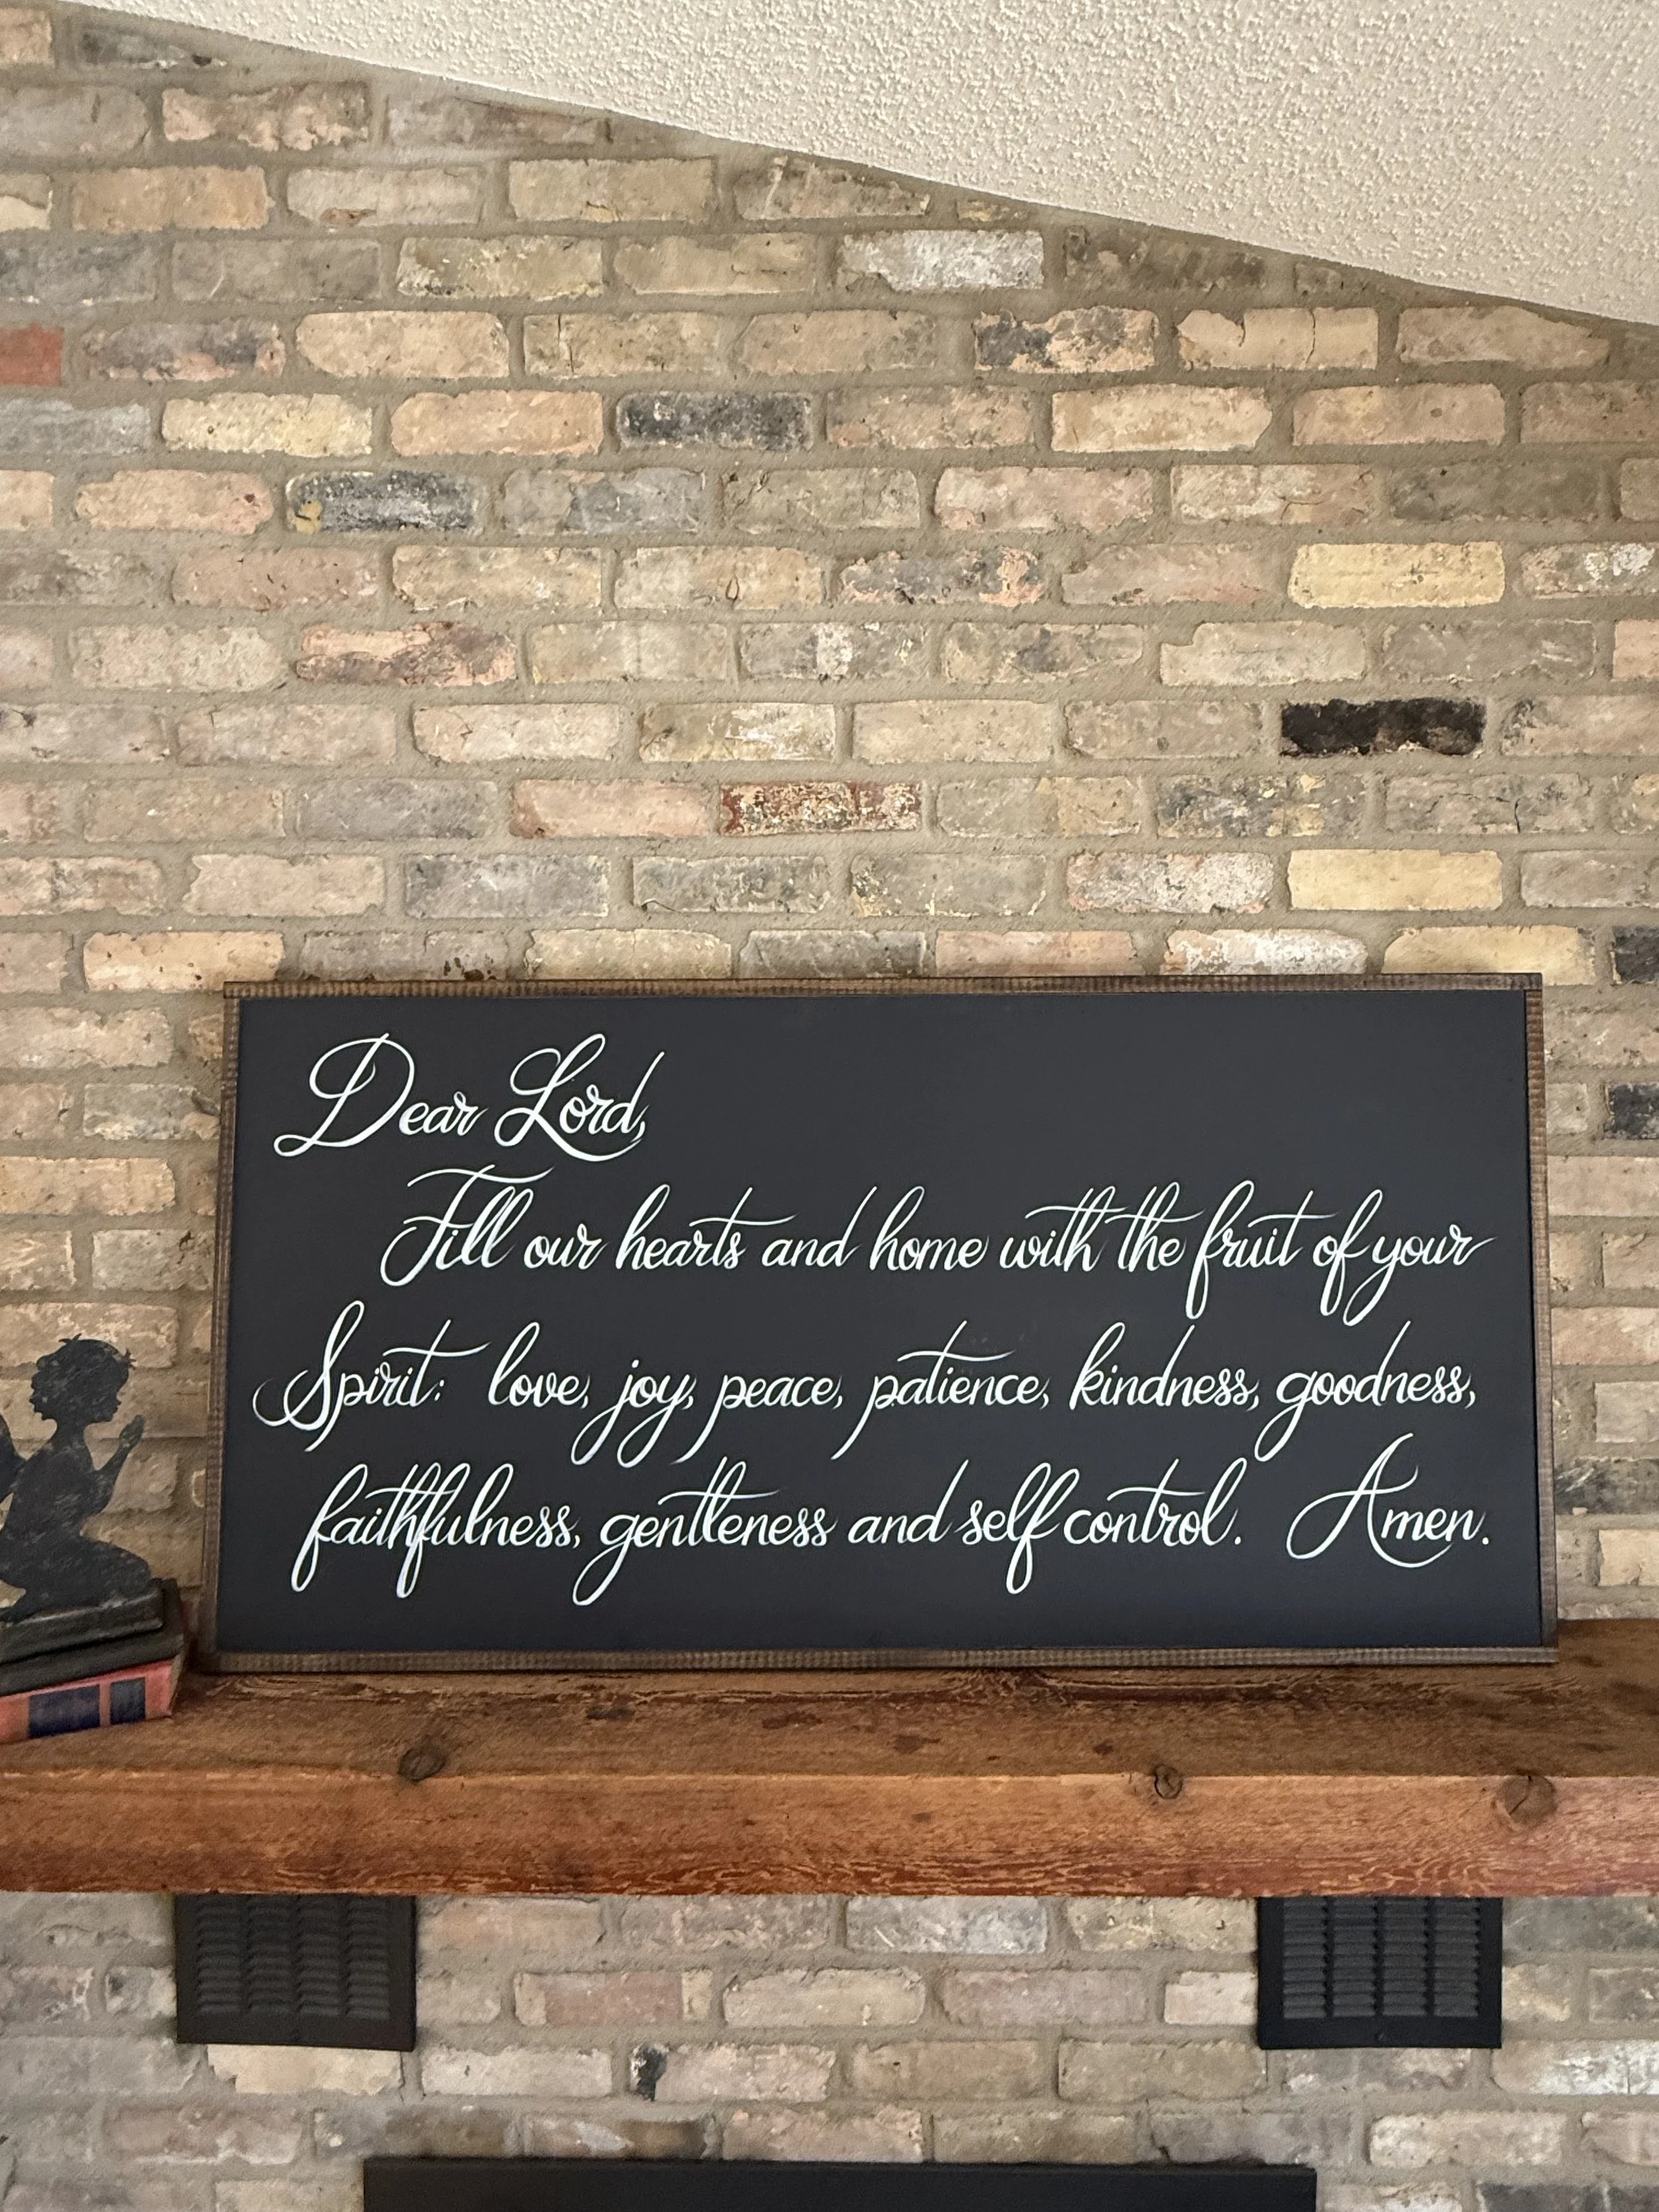 Dear Lord,
Fill our hearts and home with the fruit of your
Spirit: love, joy, peace, patience, kindness, goodness,
faithfulness, gentleness and self control. Amen.